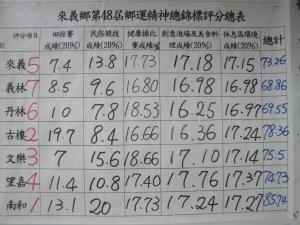 來義鄉第48屆鄉運精神總錦標評分總表
評分項目 田徑賽成績(20%) 民俗競技成績(20%) 健康操比賽成績(20%) 創意進場及美食料理成績(20%) 休息區環境成績(20%) 總計
來義 5 7.4 13.8 17.73 17.18 17.15 73.26
義林 7 8.5 9.6 16.80 16.98 16.98 68.86
丹林 6 10 7.8 18.53 16.25 16.97 69.55
古樓 2 19.7 8.4 16.66 16.36 17.24 78.36
文樂 3 7 15.6 18.66 17.10 17.14 75.5
望嘉 4 11.4 10.8 17.40 17.76 17.37 74.73
南和 1 13.1 20 17.73 17.24 17.27 85.74